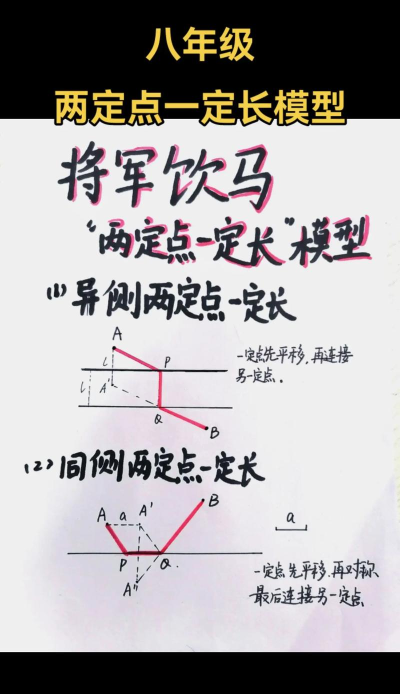 八年级
两定点一定长模型
将军饮马
“两定点一定长”模型
(1)异侧两定点一定长
A
l
P
一定点先平移,再连接
另一定点。
l
A'
Q
B
(2)同侧两定点一定长
A
a
A'
B
a
P
Q.
A"
一定点先平移,再对称、
最后连接另一定点